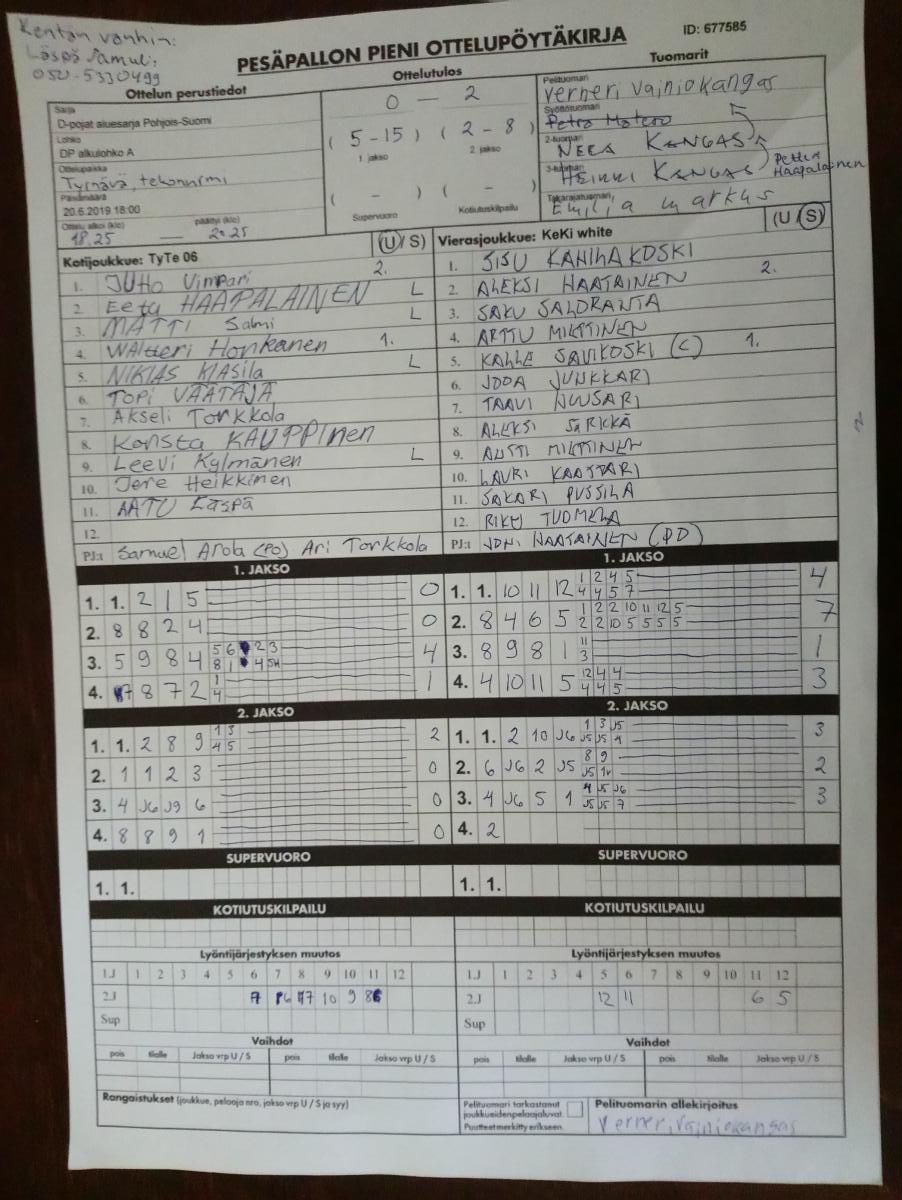 Kentän vanhin:
Läspä Samuli
050-5330499
PESÄPALLON PIENI OTTELUPÖYTÄKIRJA
ID: 677585
Ottelun perustiedot
Sarja
D-pojat aluesarja Pohjois-Suomi
Lohko
DP alkulohko A
Ottelupaikka
Tyrnävä, tekonurmi
Päivämäärä
20.6.2019 18:00
Ottelu alkoi (klo) päättyi (klo)
18.25 — 20.25
Ottelutulos
0 — 2
(5-15) (2-8)
1 jakso 2 jakso
( - ) ( - )
Supervuoro Kotiutuskilpailu
Tuomarit
Pelituomari
Verneri Vainiokangas
Syöttötuomari
2-tuomari
NEEA KANGAS
3-tuomari
HEIKKI KANGAS
Petteri Haapalainen
Takarajatuomari
Emilia Markus
Kotijoukkue: TyTe 06 (U/S)
1. JUHO Vimpari 2.
2. Eetu HAAPALAINEN L
3. MATTI Salmi L
4. Waltteri Honkanen 1.
5. NIKLAS Klasila L
6. TOPI VÄÄTÄJÄ
7. Akseli Torkkola
8. Konsta KAUPPINEN
9. Leevi Kylmänen L
10. Jere Heikkinen
11. AATU Läspä
12.
PJ:t Samuel Arola (PO) Ari Torkkola
Vierasjoukkue: KeKi white (U/S)
1. SISU KANILAKOSKI
2. ALEKSI HAATAINEN 2.
3. SAKU SALORANTA
4. ARTTU MIETTINEN
5. KALLE SAVIKOSKI (C) 1.
6. JOOA JUNKKARI
7. TAAVI HUUSARI
8. ALEKSI SARKKÄ
9. ANTTI MIETTINEN
10. LAURI KAATTARI
11. SAKARI PUSSILA
12. RIKU TUOMELA
PJ:t JONI HAATAINEN (PD)
1. JAKSO
1. 1. 2 1 5 0
2. 8 8 2 4 0
3. 5 9 8 4 4
4. 7 8 7 2 1 4 1
1. JAKSO
1. 1. 10 11 12 1 2 4 5 4
4 4 5 7
2. 8 4 6 5 1 2 2 10 11 12 5 7
2 2 10 5 5 5 5
3. 8 9 8 1 11 1
3
4. 4 10 11 5 12 4 4 3
4 4 5
2. JAKSO
1. 1. 2 8 9 1 3 2
4 5
2. 1 1 2 3 0
3. 4 J6 J9 6 0
4. 8 8 9 1 0
2. JAKSO
1. 1. 2 10 J6 1 3 J5 3
J5 J5 4
2. 6 J6 2 J5 8 9 2
3. 4 J6 5 1 4 J5 J6 3
J5 J5 7
4. 2
SUPERVUORO
1. 1.
SUPERVUORO
1. 1.
KOTIUTUSKILPAILU
KOTIUTUSKILPAILU
Lyöntijärjestyksen muutos
1.J 1 2 3 4 5 6 7 8 9 10 11 12
2.J 7 10 9
Sup
Lyöntijärjestyksen muutos
1.J 1 2 3 4 5 6 7 8 9 10 11 12
2.J 12 11 6 5
Sup
Vaihdot
pois tilalle Jakso vrp U / S pois tilalle Jakso vrp U / S
Vaihdot
pois tilalle Jakso vrp U / S pois tilalle Jakso vrp U / S
Rangaistukset (joukkue, pelaaja nro, jakso vrp U / S ja syy)
Pelituomari tarkastanut
joukkueiden pelaajaluvat.
Puutteet merkitty erikseen.
Pelituomarin allekirjoitus
Verneri Vainiokangas